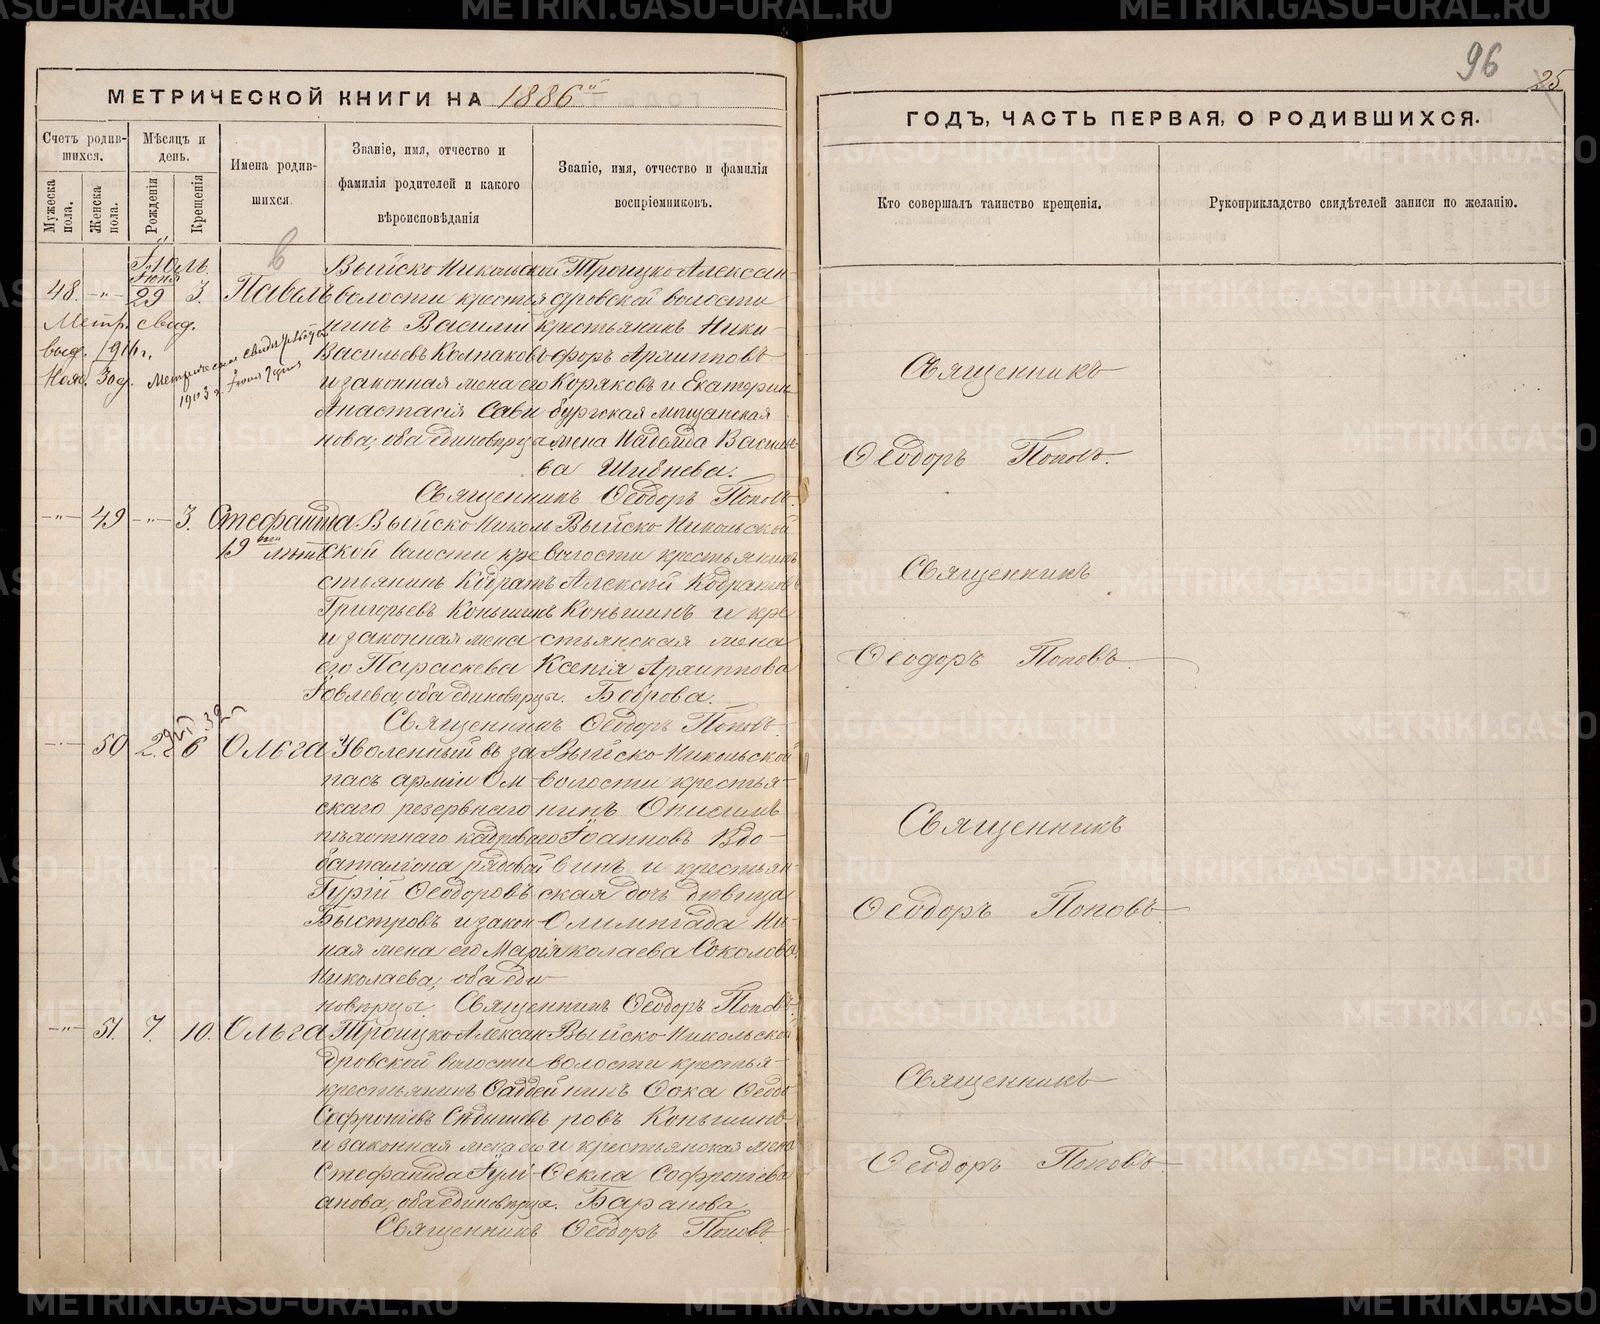 METRIKI.GASO-URAL.RU
96
25
МЕТРИЧЕСКОЙ КНИГИ НА 1886й
ГОДЪ, ЧАСТЬ ПЕРВАЯ, О РОДИВШИХСЯ.
Счетъ родив-
шихся.
Мужеска
пола.
Женска
пола.
Мѣсяцъ и
день.
Рожденія
Крещенія
Имена родив-
шихся.
Званіе, имя, отчество и
фамилія родителей и какого
вѣроисповѣданія
Званіе, имя, отчество и фамилія
воспріемниковъ.
Кто совершалъ таинство крещенія.
Рукоприкладство свидѣтелей записи по желанію.
Іюль.
Іюня
48. -„- 29 3. Павелъ
Метр. свид.
выд. 1916 г.
Нояб. 30 д.
1903 г. Іюня 7 дня
Выйско Никольской
волости крестья
нинъ Василий
Васильевъ Колпаковъ
и законная жена его
Анастасія Сави
нова, оба единоверцы
Троицко Алексан-
дровской волости
крестьянинъ Ники-
форъ Архипповъ
Коряковъ и Екатерин
бургская мещанская
жена Надежда Василь
ва Шибнева.
Священникъ Ѳеодоръ Поповъ
Священникъ
Ѳеодоръ Поповъ.
-„- 49 -„- 3. Стефанида
19 лѣтъ
Выйско Николь
ской волости кре
стьянинъ Кодратъ
Григорьевъ Коньшинъ
и законная жена
его Параскева
Іовлева, оба единоверцы.
Выйско Никольской
волости крестьянинъ
Алексѣй Кодратовъ
Коньшинъ и кре
стьянская жена
Ксенія Архиппова
Боброва.
Священникъ Ѳеодоръ Поповъ
Священникъ
Ѳеодоръ Поповъ.
50 2. 6 Ольга
Уволенный въ за
пасъ арміи Ом
скаго резервнаго
пѣхотнаго кадроваго
баталіона рядовой
Гурій Ѳеодоровъ
Быстровъ и закон
ная жена его Марія
Николаева, оба еди
новерцы.
Выйско Никольской
волости крестья-
нинъ Онисимъ
Іоанновъ Вдо-
винъ и крестьян
ская дочь дѣвица
Олимпіада Ни-
колаева Соколова.
Священникъ Ѳеодоръ Поповъ.
Священникъ
Ѳеодоръ Поповъ.
-„- 51. 7. 10. Ольга
Троицко Алексан
дровской волости
крестьянинъ Ѳаддей
Софроніевъ Сѣдышевъ
и законная жена его
Стефанида Гурі-
анова, оба единоверцы.
Выйско Никольской
волости крестья-
нинъ Ѳока Ѳеодо
ровъ Коньшинъ
и крестьянская жена
Ѳекла Софроніева
Баранова.
Священникъ Ѳеодоръ Поповъ
Священникъ
Ѳеодоръ Поповъ.